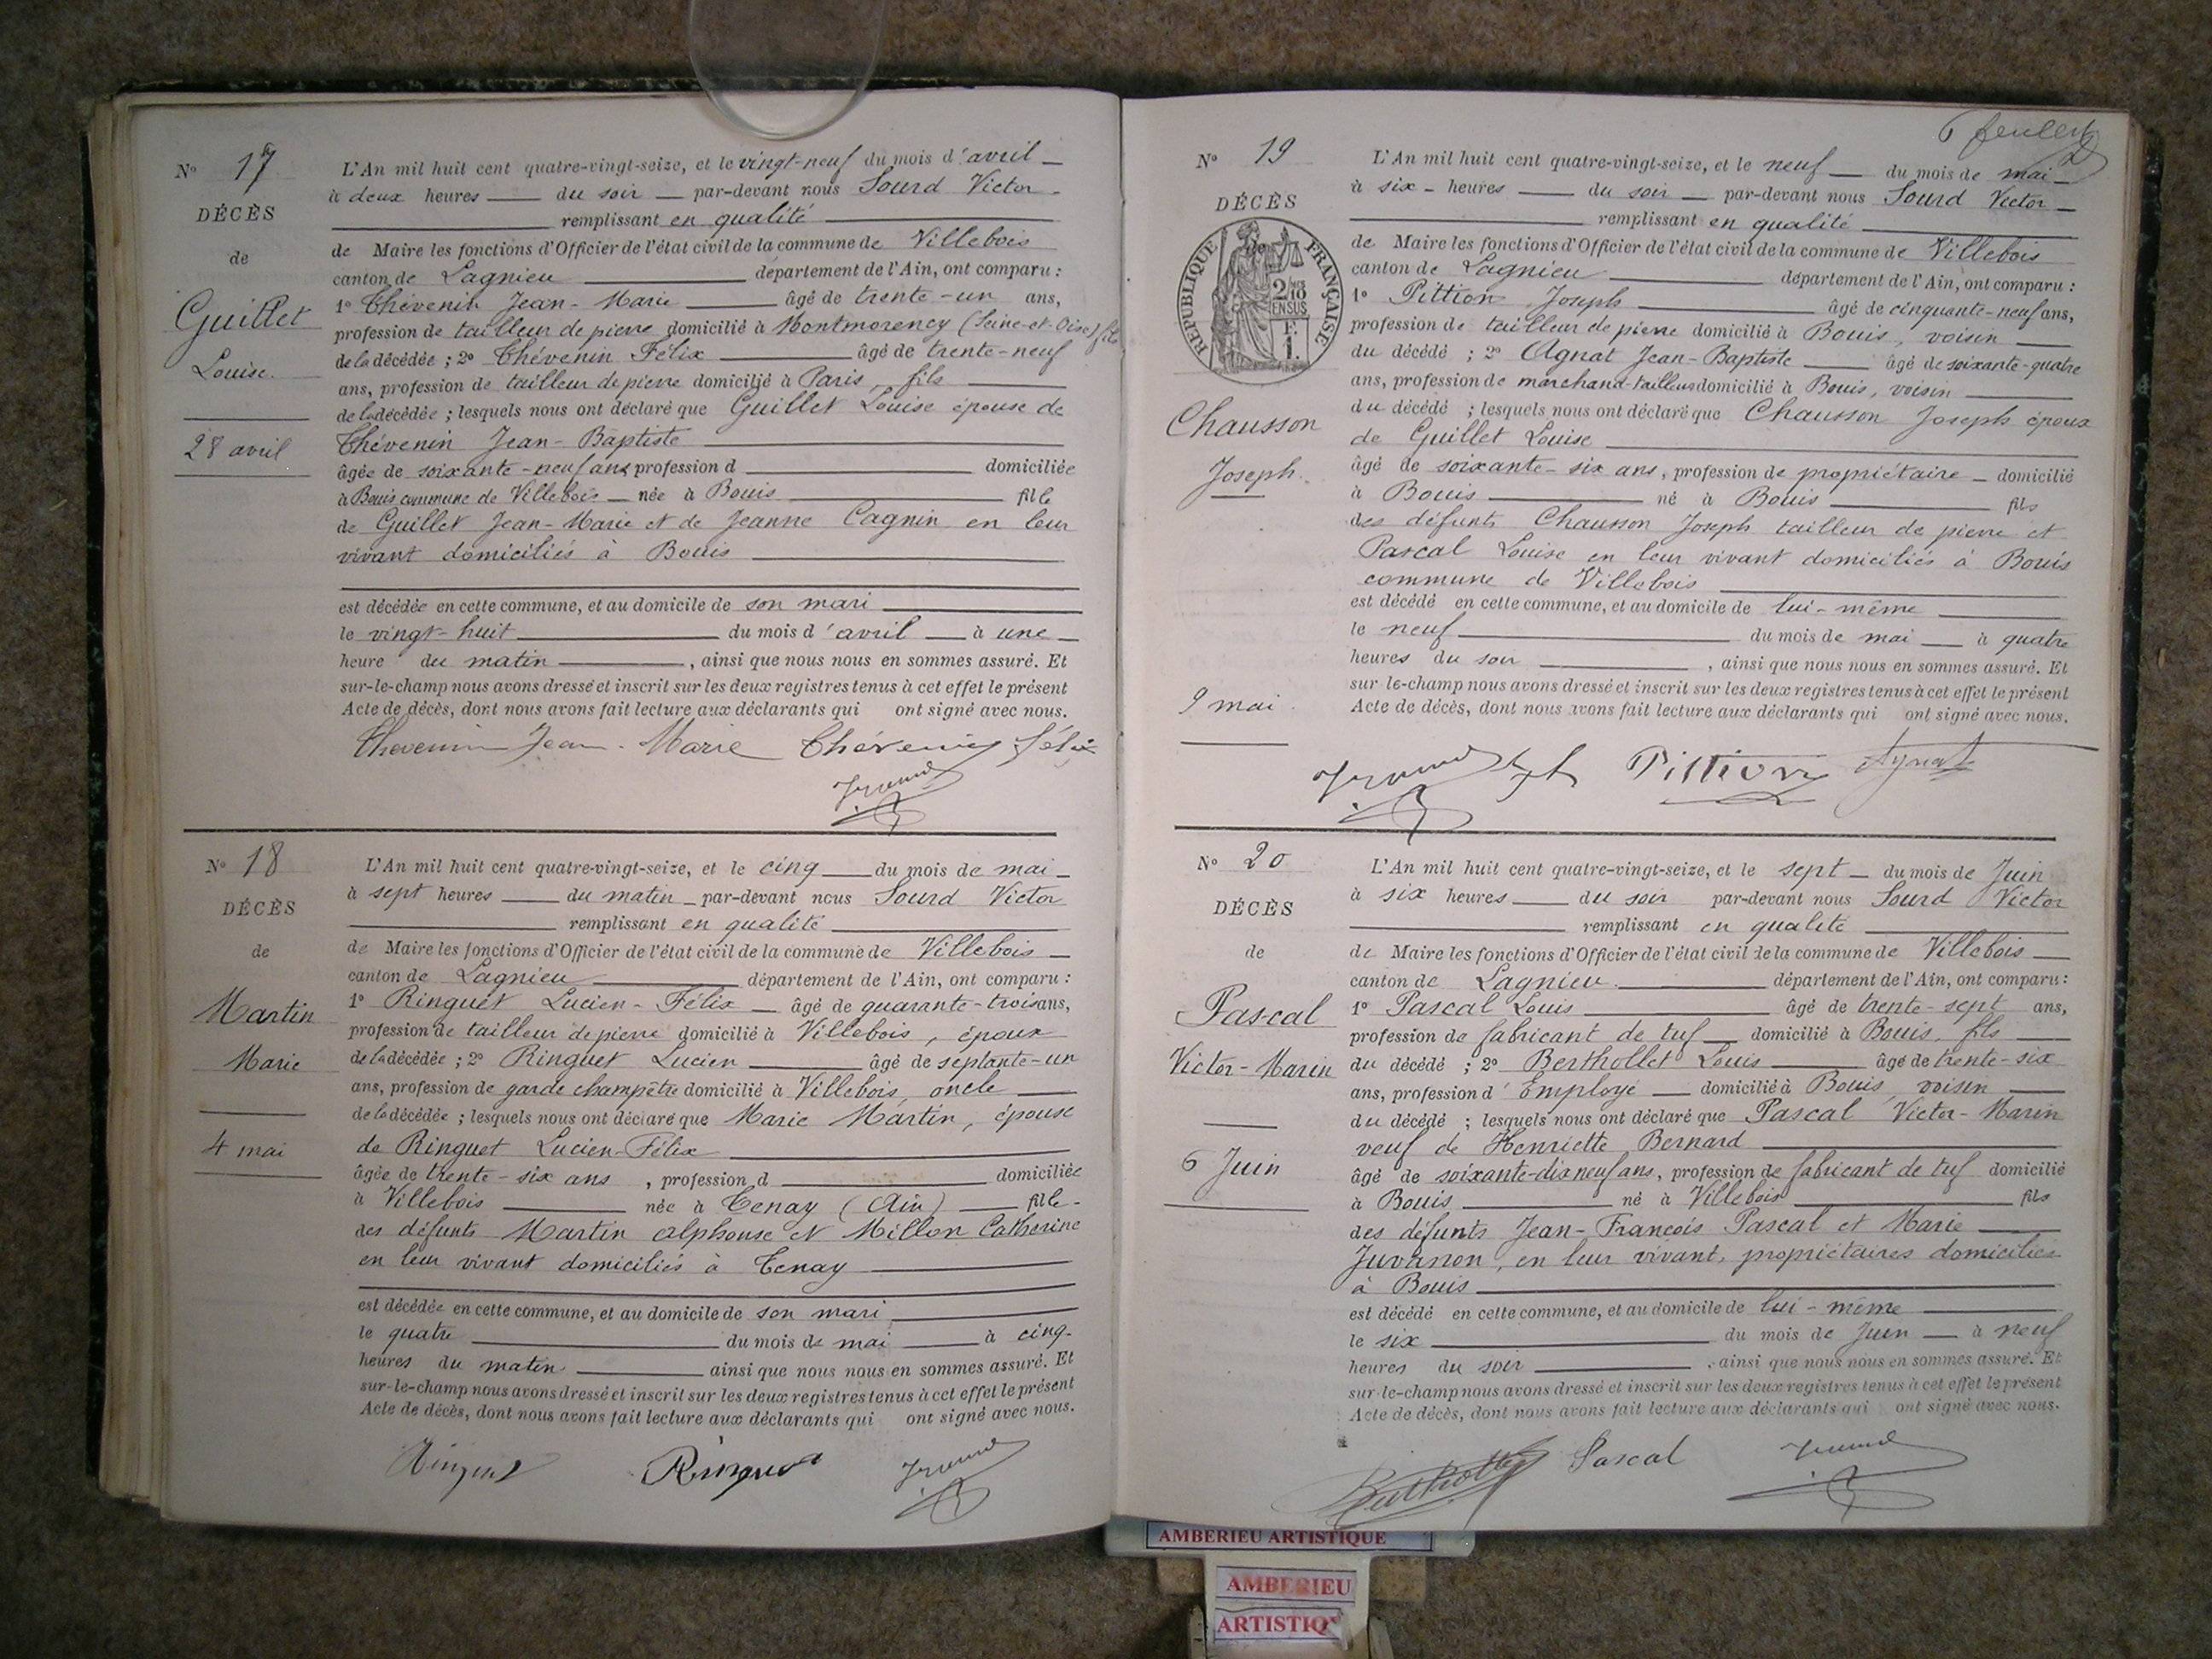 N° 17
DÉCÈS
de
Guillet
Louise.
28 avril
L'An mil huit cent quatre-vingt-seize, et le vingt-neuf du mois d'avril
à deux heures du soir par-devant nous Sourd Victor
remplissant en qualité
de Maire les fonctions d'Officier de l'état civil de la commune de Villebois
canton de Lagnieu département de l'Ain, ont comparu :
1° Thévenin Jean-Marie âgé de trente-un ans,
profession de tailleur de pierre domicilié à Montmorency (Seine-et-Oise) fils
de la décédée ; 2° Thévenin Félix âgé de trente-neuf
ans, profession de tailleur de pierre domicilié à Paris, fils
de la décédée ; lesquels nous ont déclaré que Guillet Louise épouse de
Thévenin Jean-Baptiste
âgée de soixante-neuf ans profession d domiciliée
à Bouis commune de Villebois née à Bouis fille
de Guillet Jean-Marie et de Jeanne Cagnin en leur
vivant domiciliés à Bouis
est décédée en cette commune, et au domicile de son mari
le vingt-huit du mois d'avril à une
heure du matin, ainsi que nous nous en sommes assuré. Et
sur-le-champ nous avons dressé et inscrit sur les deux registres tenus à cet effet le présent
Acte de décès, dont nous avons fait lecture aux déclarants qui ont signé avec nous.
Thevenin Jean-Marie Thévenin Félix
N° 18
DÉCÈS
de
Martin
Marie
4 mai
L'An mil huit cent quatre-vingt-seize, et le cinq du mois de mai
à sept heures du matin par-devant nous Sourd Victor
remplissant en qualité
de Maire les fonctions d'Officier de l'état civil de la commune de Villebois
canton de Lagnieu département de l'Ain, ont comparu :
1° Ringuet Lucien-Félix âgé de quarante-trois ans,
profession de tailleur de pierre domicilié à Villebois, époux
de la décédée ; 2° Ringuet Lucien âgé de septante-un
ans, profession de garde champêtre domicilié à Villebois, oncle
de la décédée ; lesquels nous ont déclaré que Marie Martin, épouse
de Ringuet Lucien-Félix
âgée de trente-six ans, profession d domiciliée
à Villebois née à Tenay (Ain) fille
des défunts Martin Alphonse et Millon Catherine
en leur vivant domiciliés à Tenay
est décédée en cette commune, et au domicile de son mari
le quatre du mois de mai à cinq
heures du matin ainsi que nous nous en sommes assuré. Et
sur-le-champ nous avons dressé et inscrit sur les deux registres tenus à cet effet le présent
Acte de décès, dont nous avons fait lecture aux déclarants qui ont signé avec nous.
Ringuet Ringuet
6
N° 19
DÉCÈS
RÉPUBLIQUE FRANÇAISE
2/10 EN SUS
1 F.
Chausson
Joseph.
9 mai
L'An mil huit cent quatre-vingt-seize, et le neuf du mois de mai
à six heures du soir par-devant nous Sourd Victor
remplissant en qualité
de Maire les fonctions d'Officier de l'état civil de la commune de Villebois
canton de Lagnieu département de l'Ain, ont comparu :
1° Pittion Joseph âgé de cinquante-neuf ans,
profession de tailleur de pierre domicilié à Bouis, voisin
du décédé ; 2° Agnat Jean-Baptiste âgé de soixante-quatre
ans, profession de marchand-tailleur domicilié à Bouis, voisin
du décédé ; lesquels nous ont déclaré que Chausson Joseph époux
de Guillet Louise
âgé de soixante-six ans, profession de propriétaire domicilié
à Bouis né à Bouis fils
des défunts Chausson Joseph tailleur de pierre et
Pascal Louise en leur vivant domiciliés à Bouis
commune de Villebois
est décédé en cette commune, et au domicile de lui-même
le neuf du mois de mai à quatre
heures du soir, ainsi que nous nous en sommes assuré. Et
sur-le-champ nous avons dressé et inscrit sur les deux registres tenus à cet effet le présent
Acte de décès, dont nous avons fait lecture aux déclarants qui ont signé avec nous.
Pittion Agnat
N° 20
DÉCÈS
de
Pascal
Victor-Marin
6 Juin
L'An mil huit cent quatre-vingt-seize, et le sept du mois de Juin
à six heures du soir par-devant nous Sourd Victor
remplissant en qualité
de Maire les fonctions d'Officier de l'état civil de la commune de Villebois
canton de Lagnieu département de l'Ain, ont comparu :
1° Pascal Louis âgé de trente-sept ans,
profession de fabricant de tuf domicilié à Bouis, fils
du décédé ; 2° Berthollet Louis âgé de trente-six
ans, profession d'Employé domicilié à Bouis, voisin
du décédé ; lesquels nous ont déclaré que Pascal Victor-Marin
veuf de Henriette Bernard
âgé de soixante-dix neuf ans, profession de fabricant de tuf domicilié
à Bouis né à Villebois fils
des défunts Jean-François Pascal et Marie
Juvanon, en leur vivant, propriétaires domiciliés
à Bouis
est décédé en cette commune, et au domicile de lui-même
le six du mois de Juin à neuf
heures du soir, ainsi que nous nous en sommes assuré. Et
sur-le-champ nous avons dressé et inscrit sur les deux registres tenus à cet effet le présent
Acte de décès, dont nous avons fait lecture aux déclarants qui ont signé avec nous.
Berthollet Pascal
AMBERIEU ARTISTIQUE
AMBERIEU
ARTISTIQ